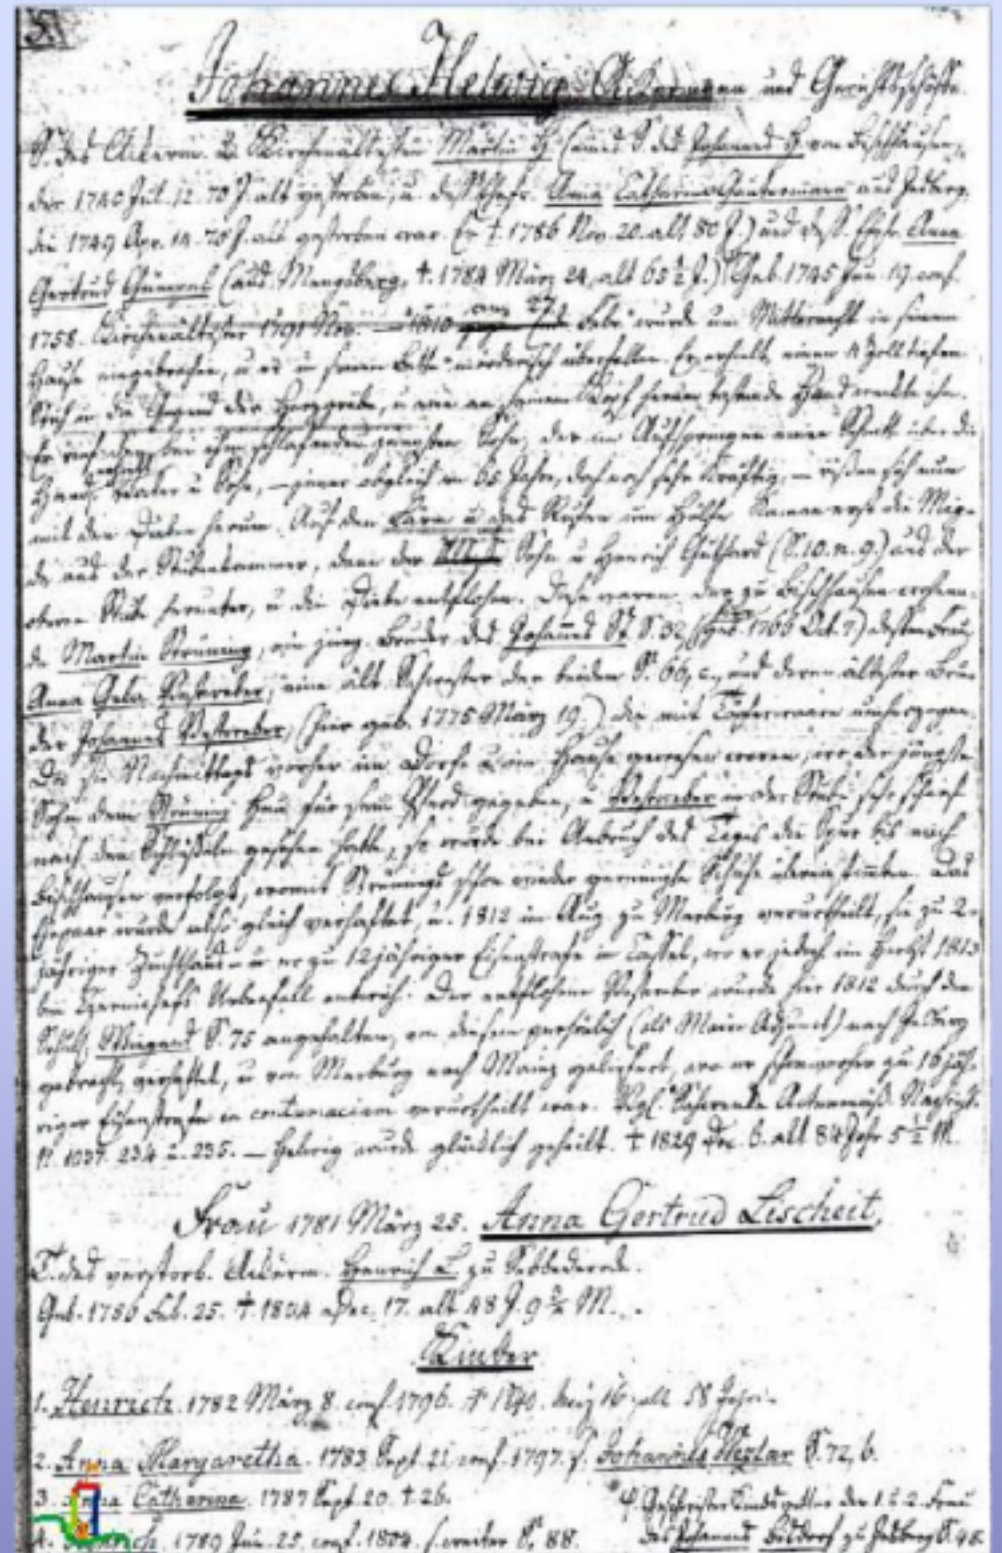 5.
Johannes Helwig Ackermann und Gerichtsschöffe.
S. des Ackerm. u. Kirchenältesten Martin H. (eines S. des Johannes H. von Bischhausen,
der 1740 Jul. 12. 70 J. alt gestorben, u. deß Ehefr. Anna Catharina aus Jesberg,
die 1749 Apr. 14. 70 J. alt gestorben war. Er †. 1786 Nov. 20. alt 80 J.) und deß. Ehefr. Anna
Gertrud (aus Mengsberg, †. 1784 März 24, alt 65½ J.) Geb. 1745 Jun. 19. conf.
1758. Kirchenältester 1791 Nov. — 1810 27 Febr. wurde um Mitternacht in seinem
Hause eingebrochen, u. er in seinem Bette mörderisch überfallen. Er erhielt einen 4 Zoll tiefen
Stich in die Gegend der Herzgrube, u. eine an seinem Kopf herum tastende Hand weckte ihn.
Er rief den bei ihm schlafenden jüngsten Sohn, der im Aufspringen einen Schnitt über die
Hand erhielt. Vater u. Sohn, — jener obgleich 65 Jahre, doch noch sehr kräftig, — rissen sich nun
mit den Dieben herum. Auf den Lärm u. das Rufen um Hülfe kamen erst die Mäg-
de aus der Stubenkammer, dann der Sohn u. Henrich Guthard (S. 10. n. 9.) aus der
oberen Stube herunter, u. die Diebe entflohen. Diese waren der zu Bischhausen wohnen-
de Martin Strüning, ein jüng. Bruder des Johannes St. S. 32, (geb. 1766 Oct. 7.) dessen Frau,
Anna Gela, eine ält. Schwester der beiden S. 66, c, und deren ältester Bru-
der Johannes, (hier geb. 1775 März 19.) die mit Töpferwaare umherzogen.
Da sie Nachmittags vorher im Dorfe u. im Hause gewesen waren, wo der jüngste
Sohn dem Strüning Heu für sein Pferd gegeben, u. in der Stube sehr scharf
nach den Schlüsseln gesehen hatte, so wurde bei Anbruch des Tages die Spur bis nach
Bischhausen verfolgt, womit Strünings schon wieder gereinigte Schuhe übereinstimmten. Das
Ehepaar wurde also gleich verhaftet, u. 1812 im Aug. zu Marburg verurtheilt, sie zu 2-
jähriger Zuchthaus- u. er zu 12jähriger Eisenstrafe in Cassel, wo er jedoch im Herbst 1813
bei Czernichefs Ueberfall entwich. Der entflohene wurde hier 1812 durch den
Schulth. Weigand S. 75 angehalten, von diesem persönlich (als Maire Adjunct) nach Jesberg
gebracht, verhaftet, u. von Marburg nach Mainz geliefert, wo er schon vorher zu 16jäh-
riger Eisenstrafe in contumaciam verurtheilt war. Vgl. Actenmäß. Nachricht.
N. 1037. 234 u. 235. — Helwig wurde glücklich geheilt. † 1829 Dec. 6. alt 84 Jahr 5½ M.
Frau 1781 März 25. Anna Gertrud Lischeit,
T. des verstorb. Ackerm. Henrich L. zu Sebbeterode.
Geb. 1756 Feb. 25. †. 1804 Dec. 17. alt 48 J. 9¾ M.
Kinder
1. Henrich 1782 März 8. conf. 1796. † 1840. May 16. alt 58 Jahr.
2. Anna Margaretha. 1783 Sept. 21 conf. 1797. f. Johannes S. 72, b.
3. Anna Catharina. 1787 Sept. 20. †. 26.
4. Henrich. 1789 Jun. 25. conf. 1804. s. weiter S. 88.
der 1. u. 2. Frau
des Johannes zu Jesberg S. 48.